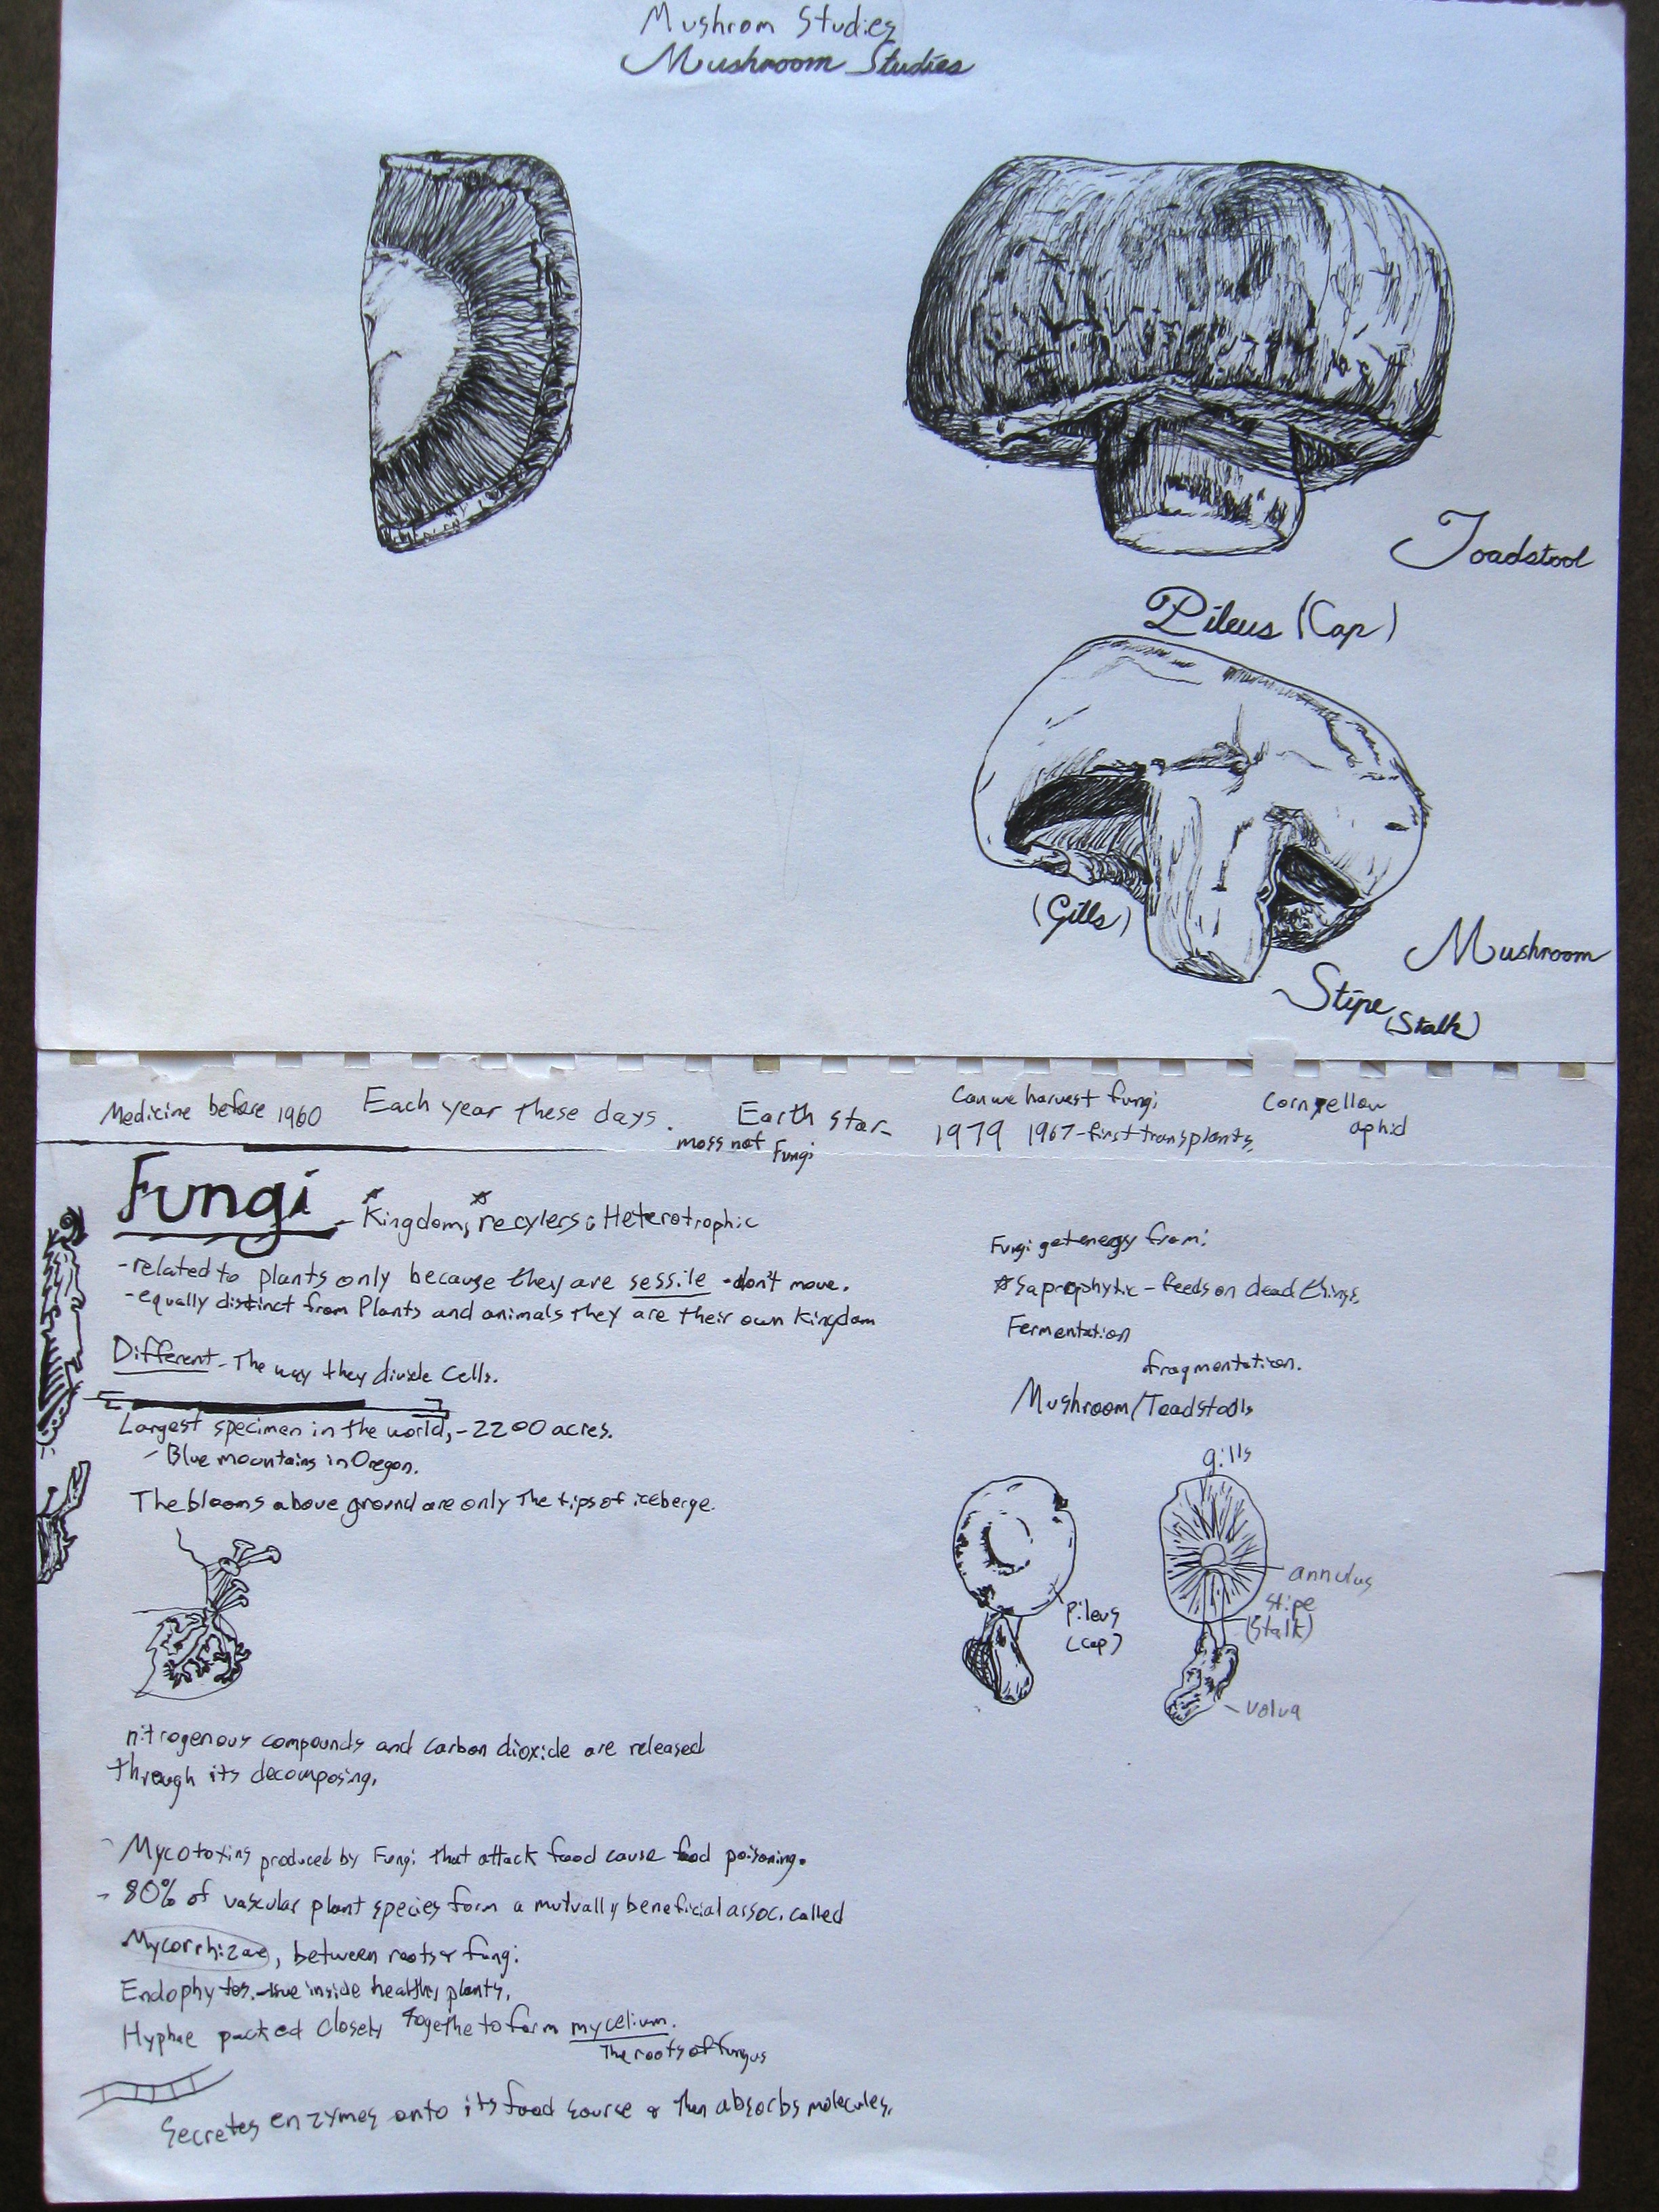 Mushrom Studies
Mushroom Studies
Toadstool
Pileus (Cap)
(Gills)
Mushroom
Stipe (Stalk)
Medicine before 1960
Each year these days.
Earth star
moss not Fungi
Can we harvest fungi
1979 1967-first transplants
Corn yellow
aphid
Fungi - Kingdom, recylers; Heterotrophic
-related to plants only because they are sessile -don't move.
-equally distinct from Plants and animals they are their own Kingdom
Different - The way they divide cells.
Largest specimen in the world, -2200 acres.
- Blue mountains in Oregon.
The blooms above ground are only the tips of iceberge.
nitrogenous compounds and carbon dioxide are released
through its decomposing.
- Mycotoxins produced by Fungi that attack food cause food poisoning.
- 80% of vascular plant species form a mutually beneficial assoc. called
Mycorrhizae, between roots & fungi.
Endophytes - live inside healthy plants.
Hyphae packed closely togethe to form mycelium.
The roots of fungus
Secretes enzymes onto its food source & then absorbs molecules.
Fungi get energy from:
Saprophytic - feeds on dead things
Fermentation
fragmentation.
Mushroom/Toadstools
gills
Pileus
(cap)
annulus
stipe
(stalk)
- volva